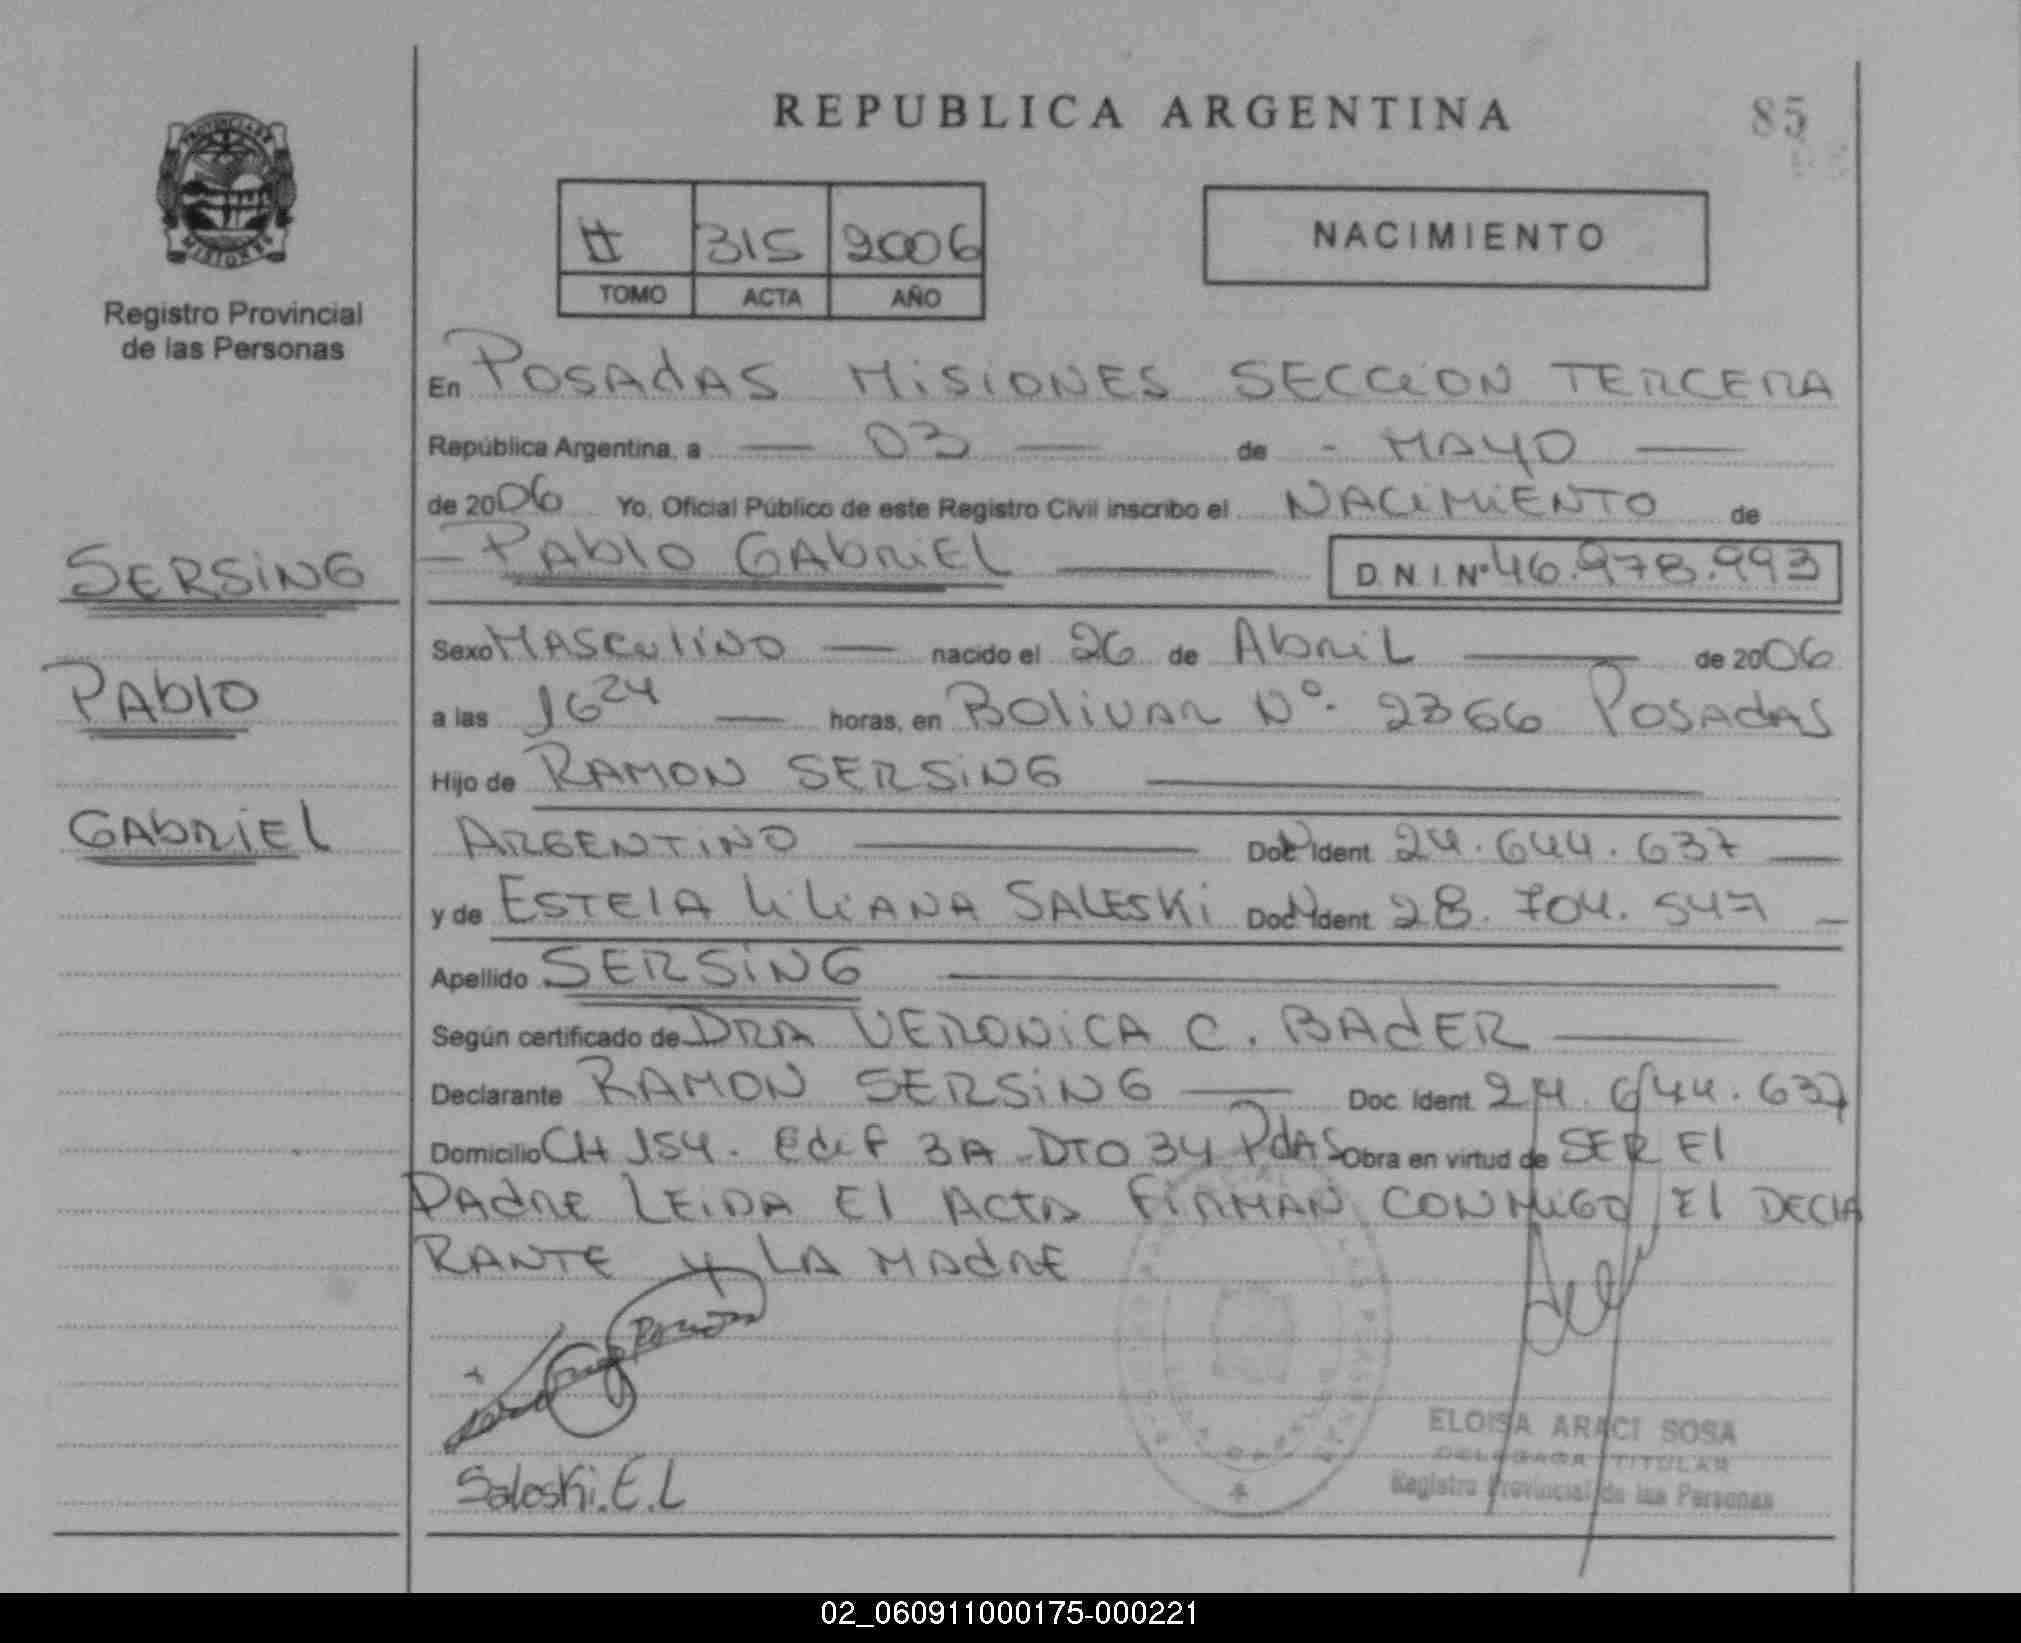 REPUBLICA ARGENTINA
85
PROVINCIA DE
MISIONES
Registro Provincial
de las Personas
II 315 2006
TOMO ACTA AÑO
NACIMIENTO
En POSADAS MISIONES SECCION TERCERA
República Argentina, a — 03 — de - MAYO —
de 2006 Yo, Oficial Público de este Registro Civil inscribo el NACIMIENTO de
SERSING
— PABLO GABRIEL — D N I Nº 46.978.993
Sexo MASCULINO — nacido el 26 de ABRIL — de 2006
PABLO
a las 16 24 — horas, en BOLIVAR Nº 2366 POSADAS
Hijo de RAMON SERSING —
GABRIEL
ARGENTINO — Doc Ident 24.644.637 —
y de ESTELA LILIANA SALESKI Doc Ident 28.704.547 —
Apellido SERSING —
Según certificado de DRA VERONICA C. BADER —
Declarante RAMON SERSING — Doc. Ident 24.644.637
Domicilio CH 154. Edif 3A - DTO 34 PdAS Obra en virtud de SER El
PADRE LEIDA El ACTA FIRMAN CONMIGO El DECLA
RANTE Y LA MADRE
Saleski.E.L
ELOISA ARACI SOSA
DELEGADA TITULAR
Registro Provincial de las Personas
02_060911000175-000221